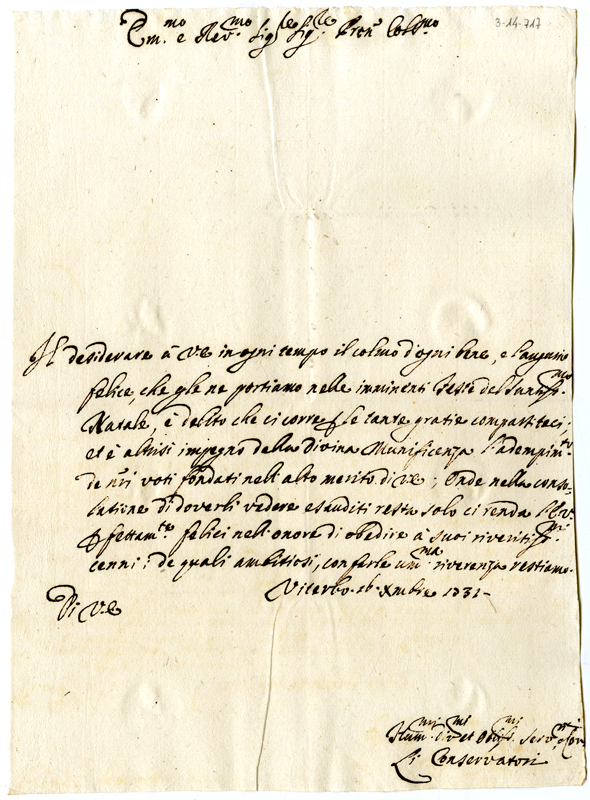 3-14-717
Em.mo e Rev.mo Sig.re Sig.re Pron.e Col.mo
Il desiderare à VE in ogni tempo il colmo d'ogni bene, e l'augurio
felice, che gle ne portiamo nelle imminenti feste del Santiss.mo
Natale, è debito che ci corre p le tante gratie compartiteci
et è altresi impegno della Divina Munificenza l'adempim.to
de nri voti fondati nell'alto merito di VE; Onde nella conso-
latione di doverli vedere esauditi resta solo ci renda l'E.V.
pfettam.te felici nell'onore di obedire à suoi riveritiss.mi
cenni; de quali ambitiosi, con farle um.ma riverenza restiamo.
Viterbo Xmbre
Di V.E.
Hum.mi Dev.mi et Obl.mi Serv.ri
Li Conservatori